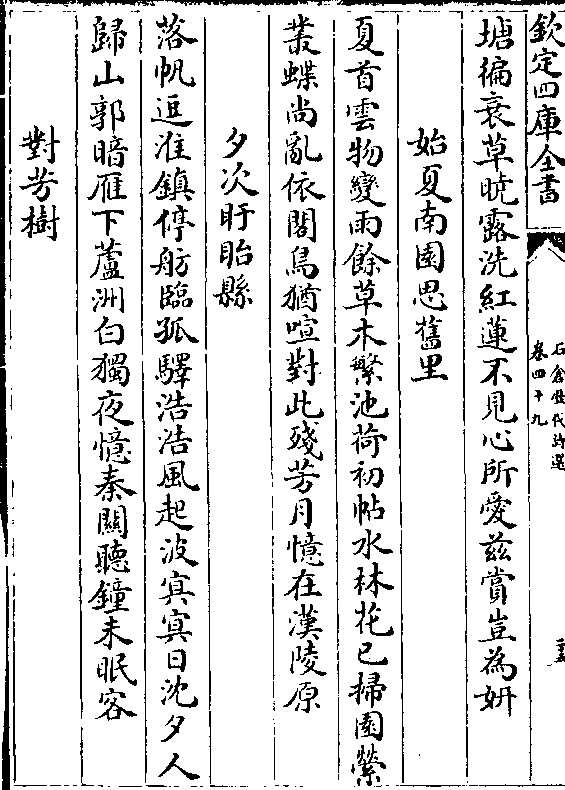 欽定四庫全書
塘徧衰草暁露洗紅蓮不見心所愛兹賞豈為妍
始夏南園思舊里
夏首雲物變雨餘草木繁池荷初帖水林花已掃園縈
叢蝶尚亂依閣鳥猶喧對此殘芳月憶在漢陵原
夕次盱眙縣
落帆逗淮鎮停舫臨孤驛浩浩風起波冥冥日沈夕人
歸山郭暗雁下蘆洲白獨夜憶秦關聽鐘未眠客
對芳樹
石倉歴代詩選
卷四十九